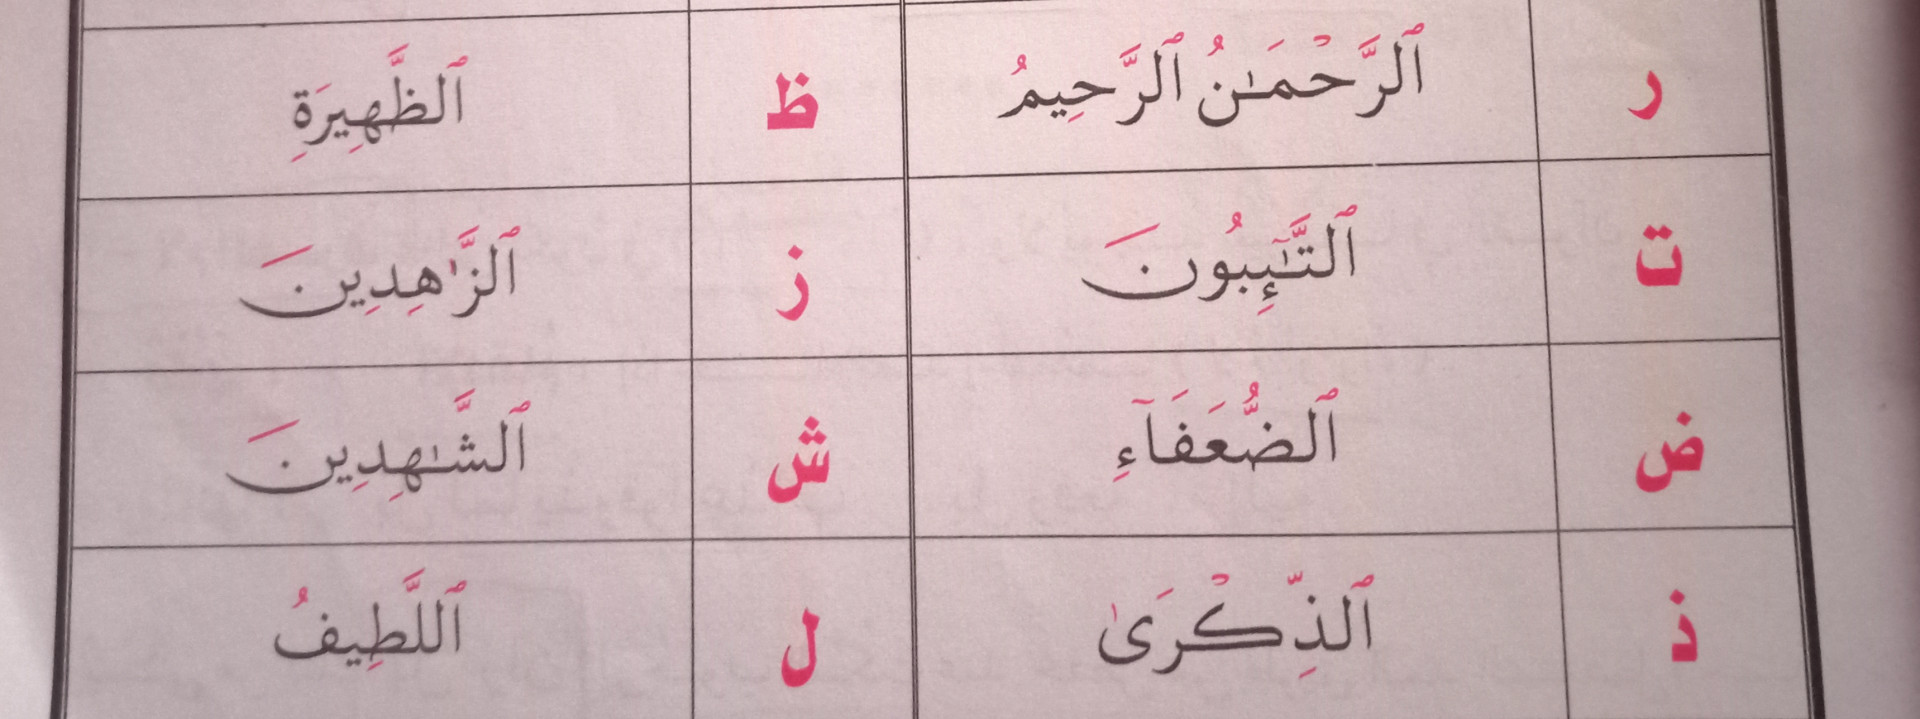 ر ٱلرَّحْمَـٰنُ ٱلرَّحِيمُ ظ ٱلظَّهِيرَةِ
ت ٱلتَّـٰٓئِبُونَ ز ٱلزَّٰهِدِينَ
ض ٱلضُّعَفَآءِ ش ٱلشَّـٰهِدِينَ
ذ ٱلذِّكْرَىٰ ل ٱللَّطِيفُ